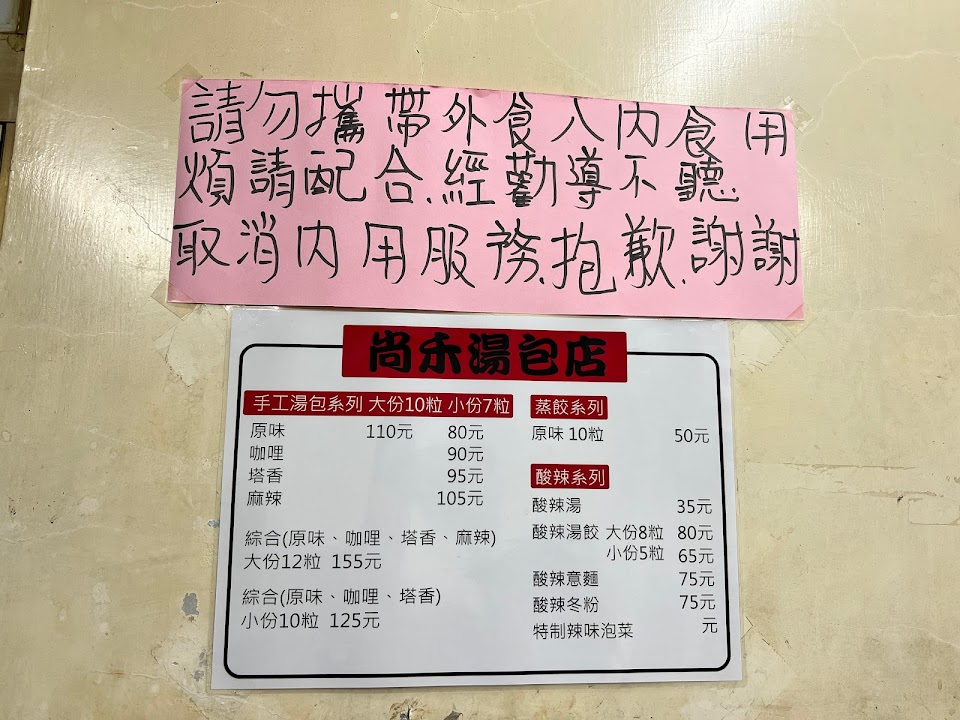 請勿攜帶外食入內食用
煩請配合.經勸導不聽.
取消內用服務.抱歉.謝謝
尚禾湯包店
手工湯包系列 大份10粒 小份7粒
原味 110元 80元
咖哩 90元
塔香 95元
麻辣 105元
綜合(原味、咖哩、塔香、麻辣)
大份12粒 155元
綜合(原味、咖哩、塔香)
小份10粒 125元
蒸餃系列
原味 10粒 50元
酸辣系列
酸辣湯 35元
酸辣湯餃 大份8粒 80元
小份5粒 65元
酸辣意麵 75元
酸辣冬粉 75元
特制辣味泡菜 元